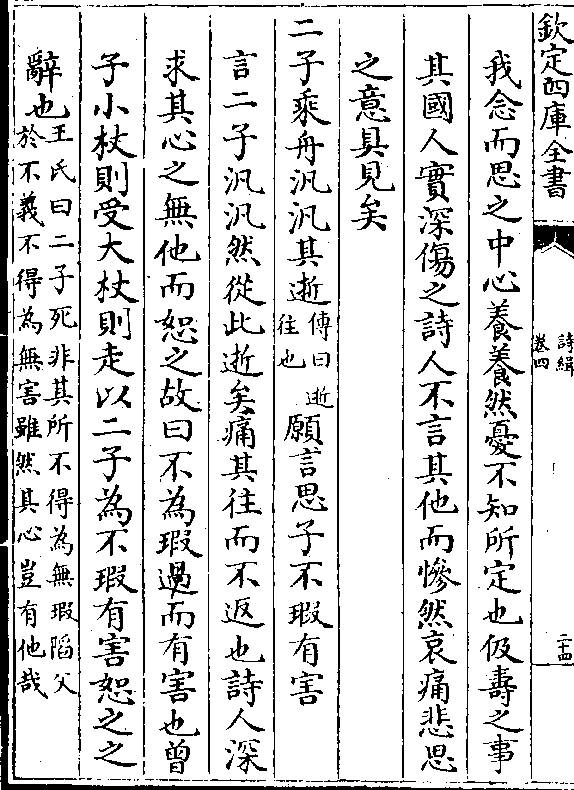 欽定四庫全書
詩緝
卷四
二十四
我念而思之中心養養然憂不知所定也伋壽之事
其國人實深傷之詩人不言其他而慘然哀痛悲思
之意具見矣
二子乘舟汎汎其逝傳曰逝往也願言思子不瑕有害
言二子汎汎然從此逝矣痛其往而不返也詩人深
求其心之無他而恕之故曰不為瑕過而有害也曾
子小杖則受大杖則走以二子為不瑕有害恕之之
辭也王氏曰二子死非其所不得為無瑕陷父於不義不得為無害雖然其心豈有他哉